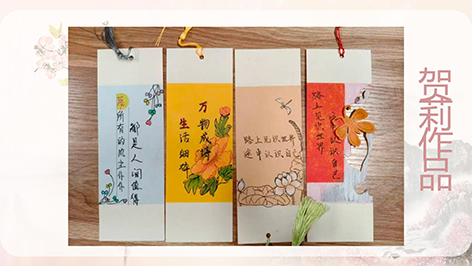 所有的风尘仆仆
都是人间值得
生活细碎
万物成诗
路上见识世界
途中认识自己
路上见识世界
途中认识自己
贺莉作品